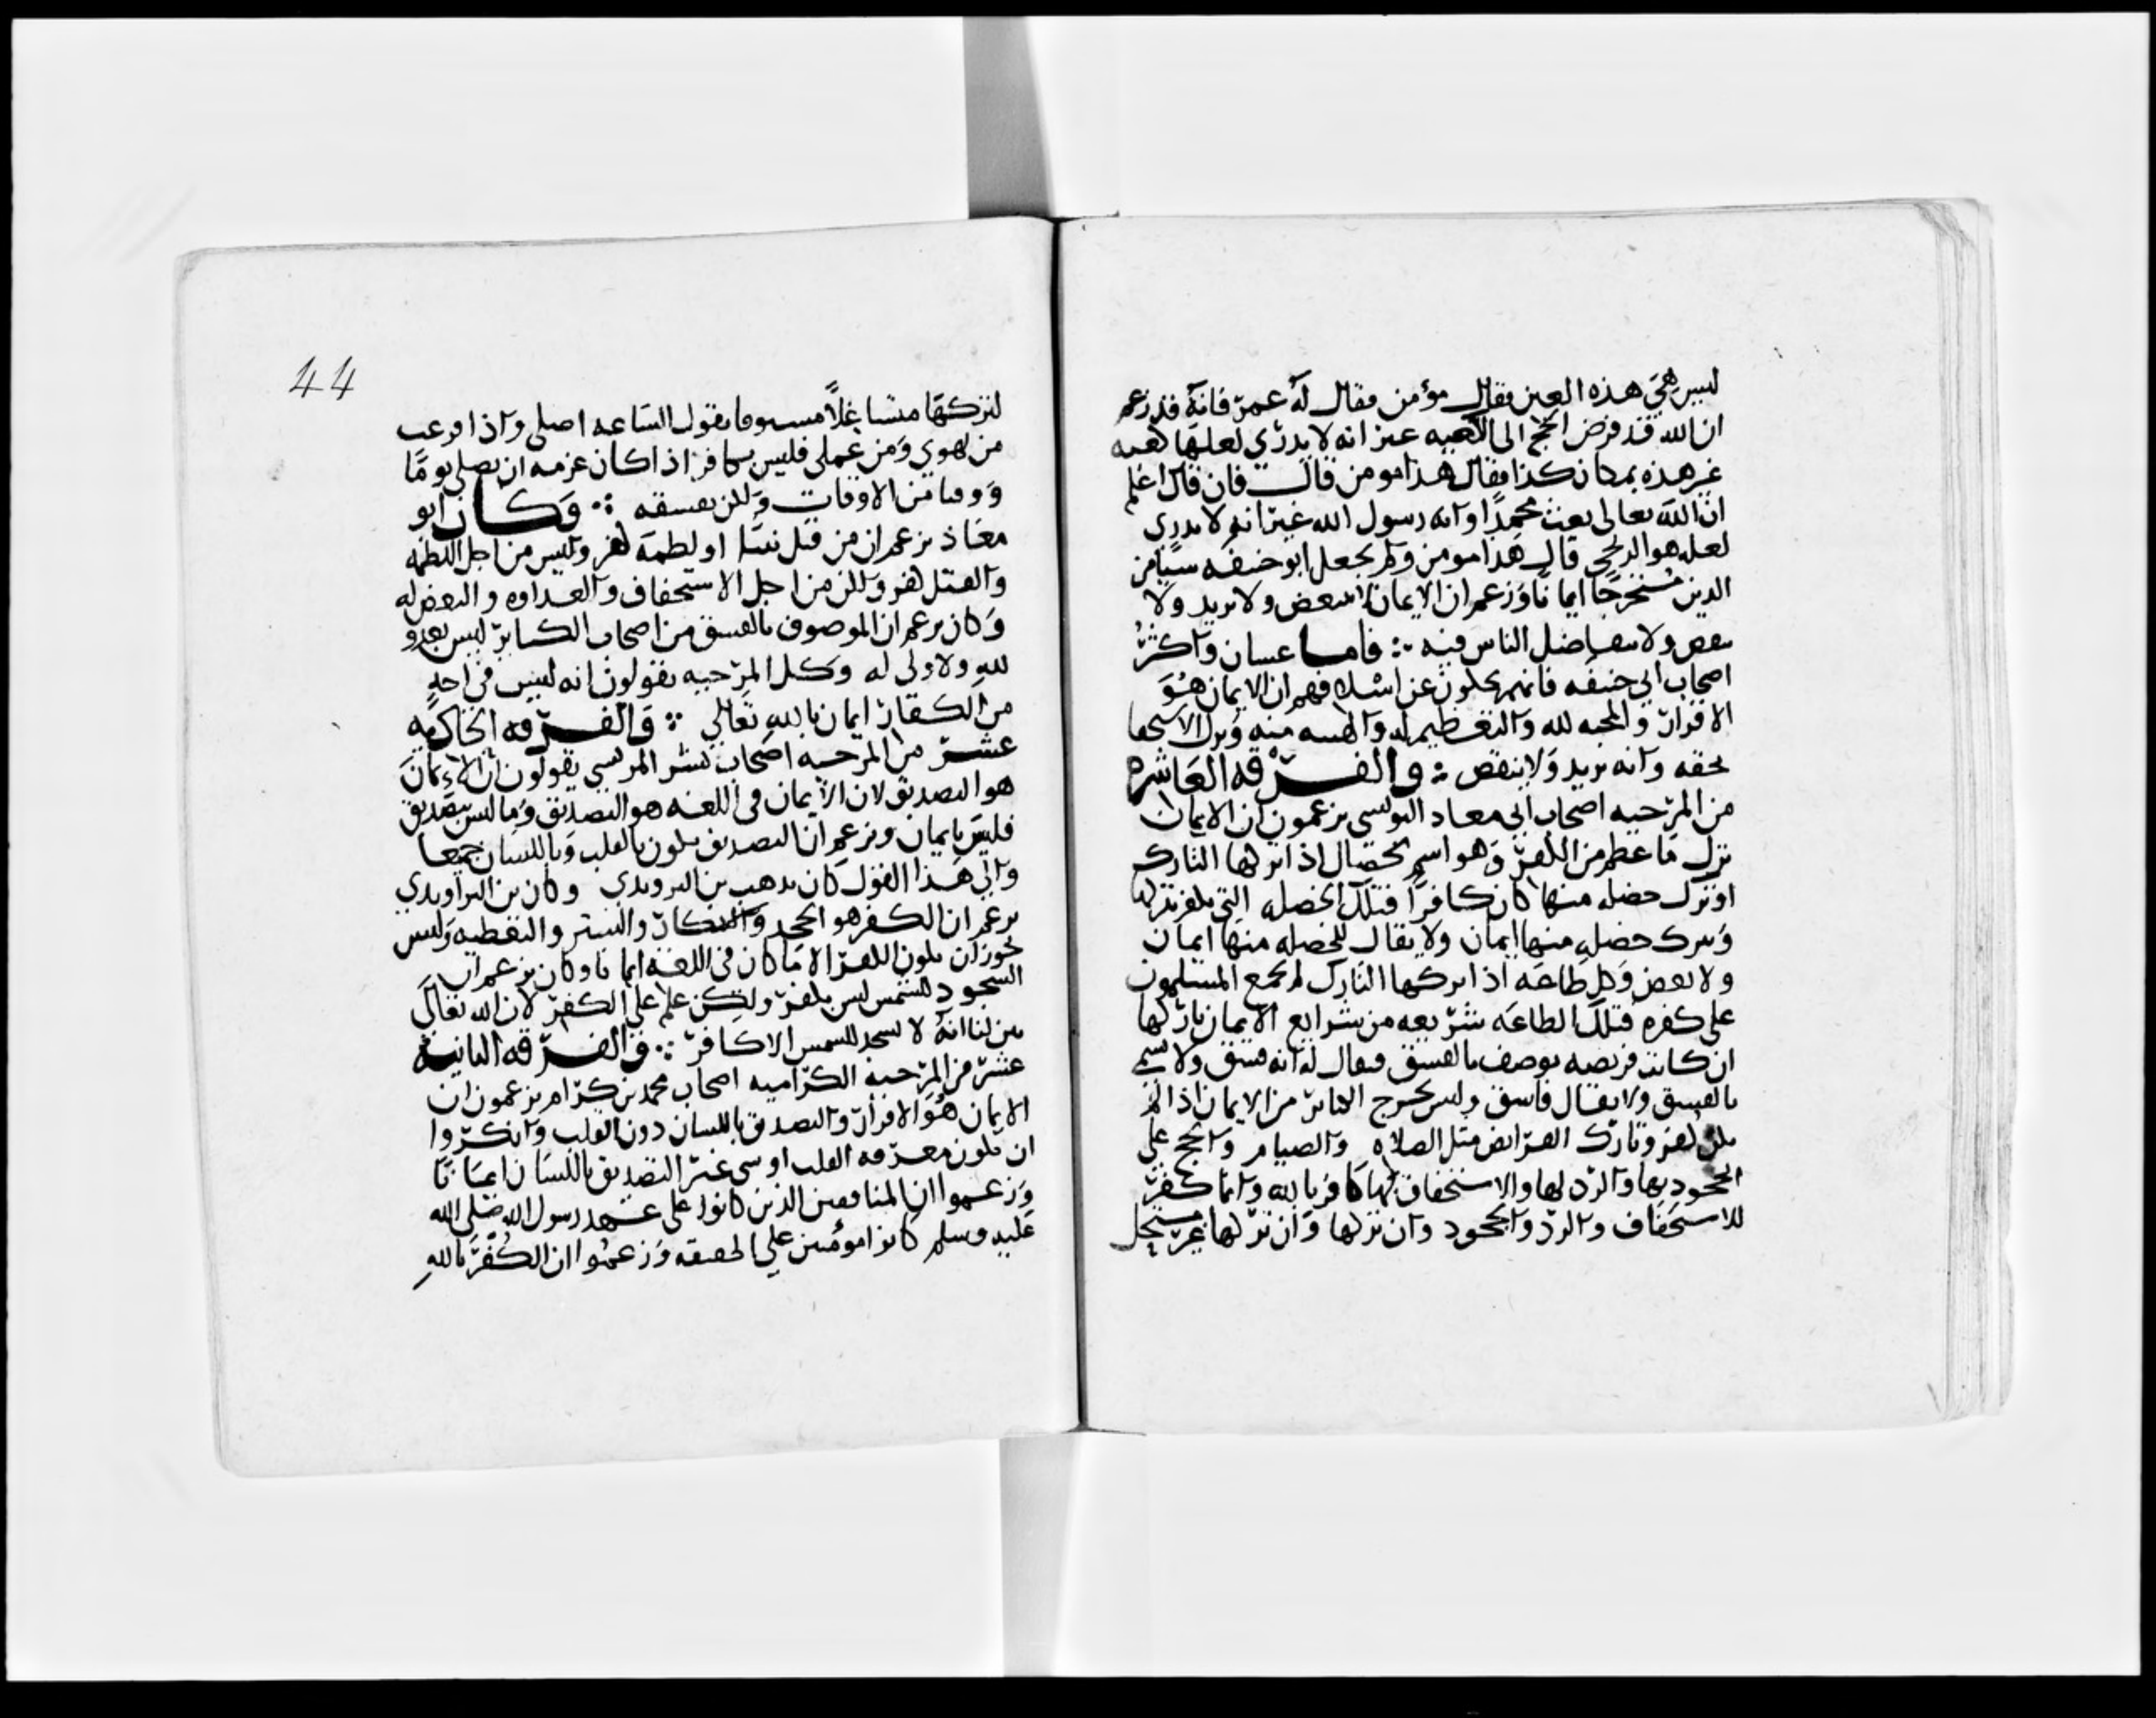 ليس هي هذه العين فقال مؤمن فقال له عمر فانه قد زعم
ان الله قد فرض الحج الى الكعبه غير انه لا يدري لعلها كعبه
غير هذه بمكان كذا فقال هذا مومن قال فان قال اعلم
ان الله تعالى بعث محمدا وانه رسول الله غير انه لا يدري
لعله هو الزنجي قال هذا مومن ولم يجعل ابو حنيفه شيا من
الدين مستخرجا ايمانا وزعم ان الايمان لا يتبعض ولا يزيد ولا
ينقص ولا يتفاضل الناس فيه فاما غسان واكثر
اصحاب ابي حنيفه فانهم يحكون عن اسلافهم ان الايمان هو
الاقرار والمحبه لله والتعظيم له والهيبه منه وترك الاستخفا
بحقه وانه يزيد ولا ينقص والفرقه العاشره
من المرجيه اصحاب ابي معاد التومني يزعمون ان الايمان
ترك ما عظم من الكفر وهو اسم لخصال اذا تركها التارك
او ترك خصله منها كان كافرا فتلك الخصله التي يكفر بتركها
وبترك خصله منها ايمان ولا يقال للخصله منها ايمان
ولا بعض وكل طاعه اذا تركها التارك لم يجمع المسلمون
على كفره فتلك الطاعه شريعه من شرايع الايمان تاركها
ان كانت فريضه يوصف بالفسق فيقال له انه فسق ولا يسمى
بالفسق ولا يقال فاسق وليس تخرج الكباير من الايمان اذا لم
يكن كفر وتارك الفرايض مثل الصلاه والصيام والحج على
الجحود بها والرد لها والاستخفاف بها كافر بالله وانما كفر
للاستخفاف والرد والجحود وان تركها وان تركها غير مستحل
44
لتركها متشاغلا مسوفا يقول الساعه اصلي واذا فرغت
من لهوي ومن عملي فليس بكافر اذا كان عزمه ان يصلي يوما
ووقتا من الاوقات ولكن نفسقه وكان ابو
معاذ يزعم ان من قتل نبيا او لطمه كفر وليس من اجل اللطمه
والقتل كفر ولكن من اجل الاستخفاف والعداوه والبغض له
وكان يزعم ان الموصوف بالفسق من اصحاب الكباير ليس بعدو
لله ولا ولي له وكل المرجيه يقولون انه ليس في احد
من الكفار ايمان بالله تعالى والفرقه الحاديه
عشر من المرجيه اصحاب بشر المريسي يقولون ان الايمان
هو التصديق لان الايمان في اللغه هو التصديق وما ليس بتصديق
فليس بايمان ويزعم ان التصديق يكون بالقلب وباللسان جميعا
والى هذا القول كان يذهب بن الروندي وكان بن الراوندي
يزعم ان الكفر هو الجحد والانكار والستر والتغطيه وليس
يجوز ان يكون الكفر الا ما كان في اللغه ايمانا وكان يزعم ان
السجود للشمس ليس بكفر ولكن علم على الكفر لان الله تعالى
بين لنا انه لا يسجد للشمس الا كافر والفرقه الثانيه
عشر من المرجيه الكراميه اصحاب محمد بن كرام يزعمون ان
الايمان هو الاقرار والتصديق باللسان دون القلب وانكروا
ان يكون معرفه القلب او شي غير التصديق باللسان ايمانا
وزعموا ان المنافقين الذين كانوا على عهد رسول الله صلى الله
عليه وسلم كانوا مؤمنين على الحقيقه وزعموا ان الكفر بالله